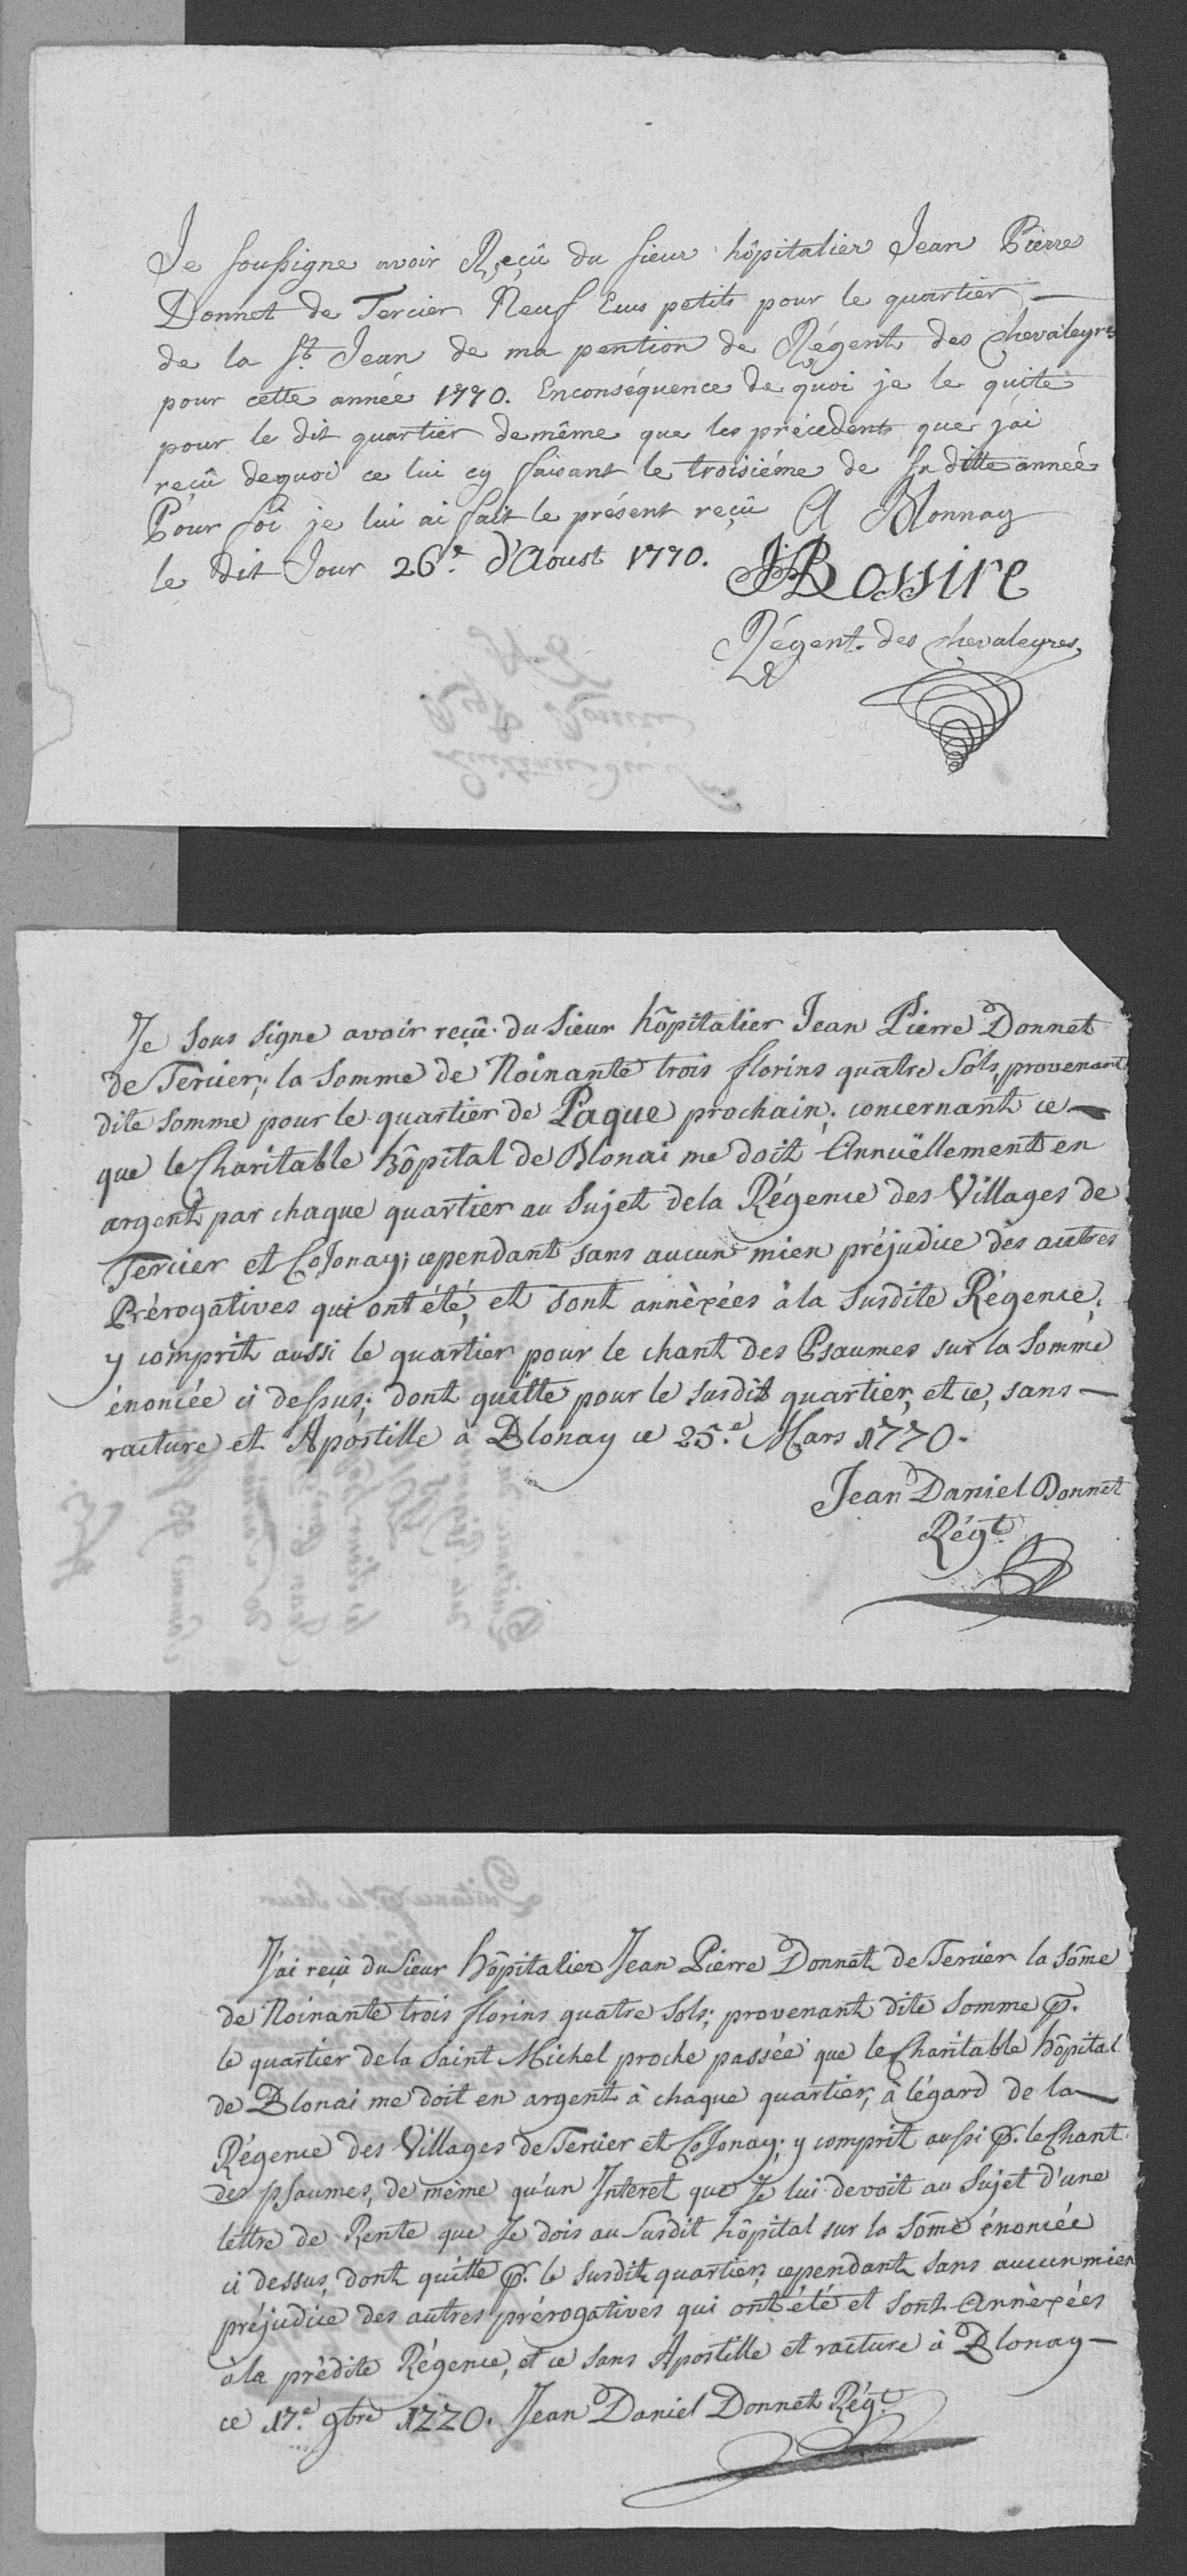 Je soussigne avoir Reçû du sieur hôpitalier Jean Pierre
Donnet de Tercier Neuf Ecus petits pour le quartier
de la St. Jean de ma pention de Régent des Chevaleyres
pour cette année 1770. Enconséquence de quoi je le quite
pour le dit quartier demême que les précedents que j'ai
reçû dequoi ce lui cy faisant le troisiéme de sa ditte année
Pour foi je lui ai fait le présent reçû A Blonnay
le dit Jour 26e. d'Aoust 1770. JBossire
Régent des Chevaleyres.
Je sous signe avoir reçû du Sieur hôpitalier Jean Pierre Donnet
de Tercier; la Somme de Noinante trois florins quatre Sols, provenant
dite somme pour le quartier de Paque prochain; concernant ce
que le Charitable hôpital de Blonai me doit Annuëllement en
argent par chaque quartier au Sujet dela Régence des Villages de
Tercier et Cojonay; cependant sans aucun mien préjudice des autres
Prérogatives qui ont été, et sont annèxées à la susdite Régence,
y comprit aussi le quartier pour le chant des Psaumes sur la Somme
énoncée ci dessus; dont quitte pour le susdit quartier, et ce, sans
racture et Apostille à Blonay ce 25.e Mars 1770.
Jean Daniel Donnet
Régt.
J'ai reçû du Sieur Hôpitalier Jean Pierre Donnet de Tercier la Sôme
de Noinante trois florins quatre Sols; provenant dite Somme p.
le quartier de la Saint Michel proche passée que le Charitable hôpital
de Blonai me doit en argent à chaque quartier, à légard de la
Régence des Villages de Tercier et Cojonay; y comprit aussi p. le Chant
des psaumes, de même qu'un Interet que Je lui devoit au Sujet d'une
lettre de Rente que Je dois au Susdit hôpital sur la Sôme énoncée
ci dessus, dont quitte p. le susdit quartier; cependant sans aucun mien
préjudice des autres prérogatives qui ont été et sont Annèxées
à la prédite Régence, et ce sans Apostille et racture à Blonay
ce 17.e 9bre 1770. Jean Daniel Donnet Régt.